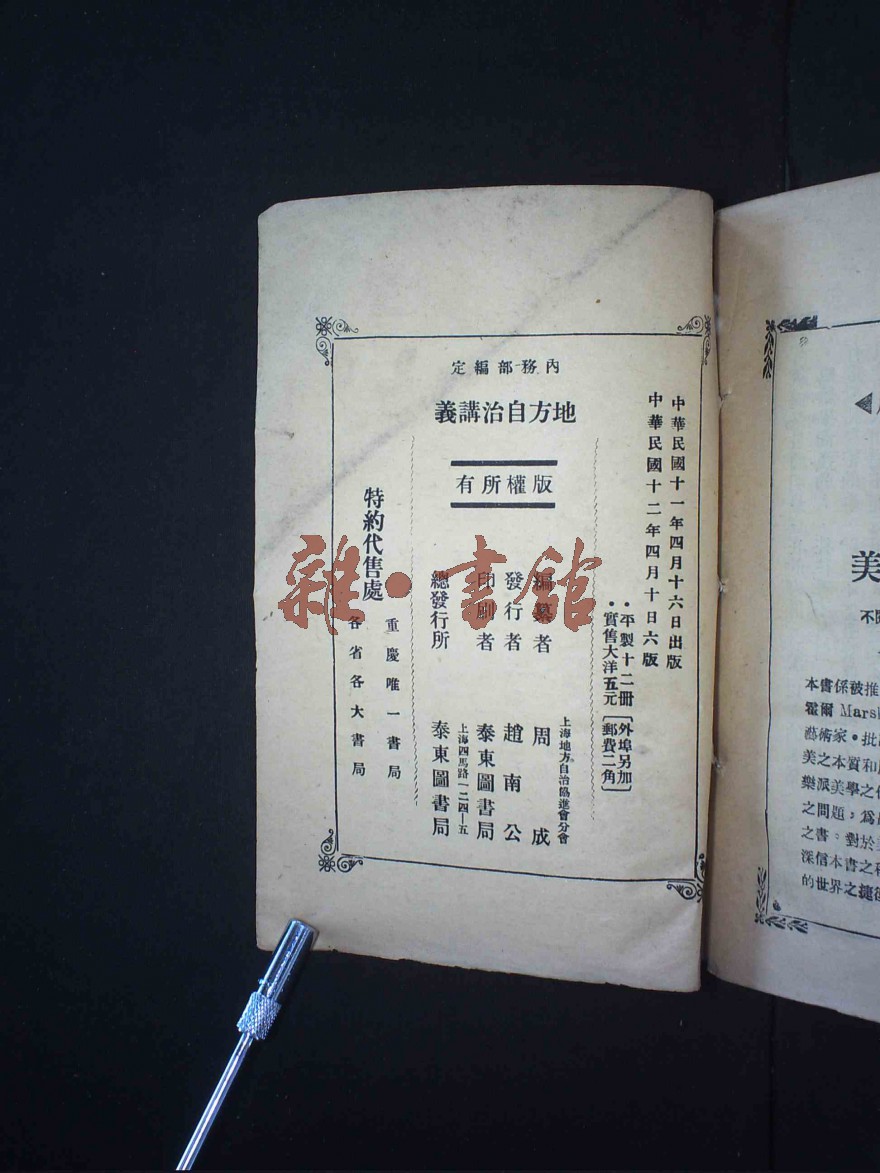 中華民國十一年四月十六日出版
中華民國十二年四月十日六版
•平製十二冊
•實售大洋五元
〔外埠另加
郵費二角〕
內務部編定
地方自治講義
版權所有
編纂者 上海地方自治協進會分會 周成
發行者 趙南公
印刷者 泰東圖書局
總發行所 上海四馬路一二四—五 泰東圖書局
特約代售處
重慶唯一書局
各省各大書局
雜·書館
美
不
本書係被推
霍爾 Mars
藝術家•批
美之本質和
樂派美學之
之問題;為
之書。對於
深信本書之
的世界之捷